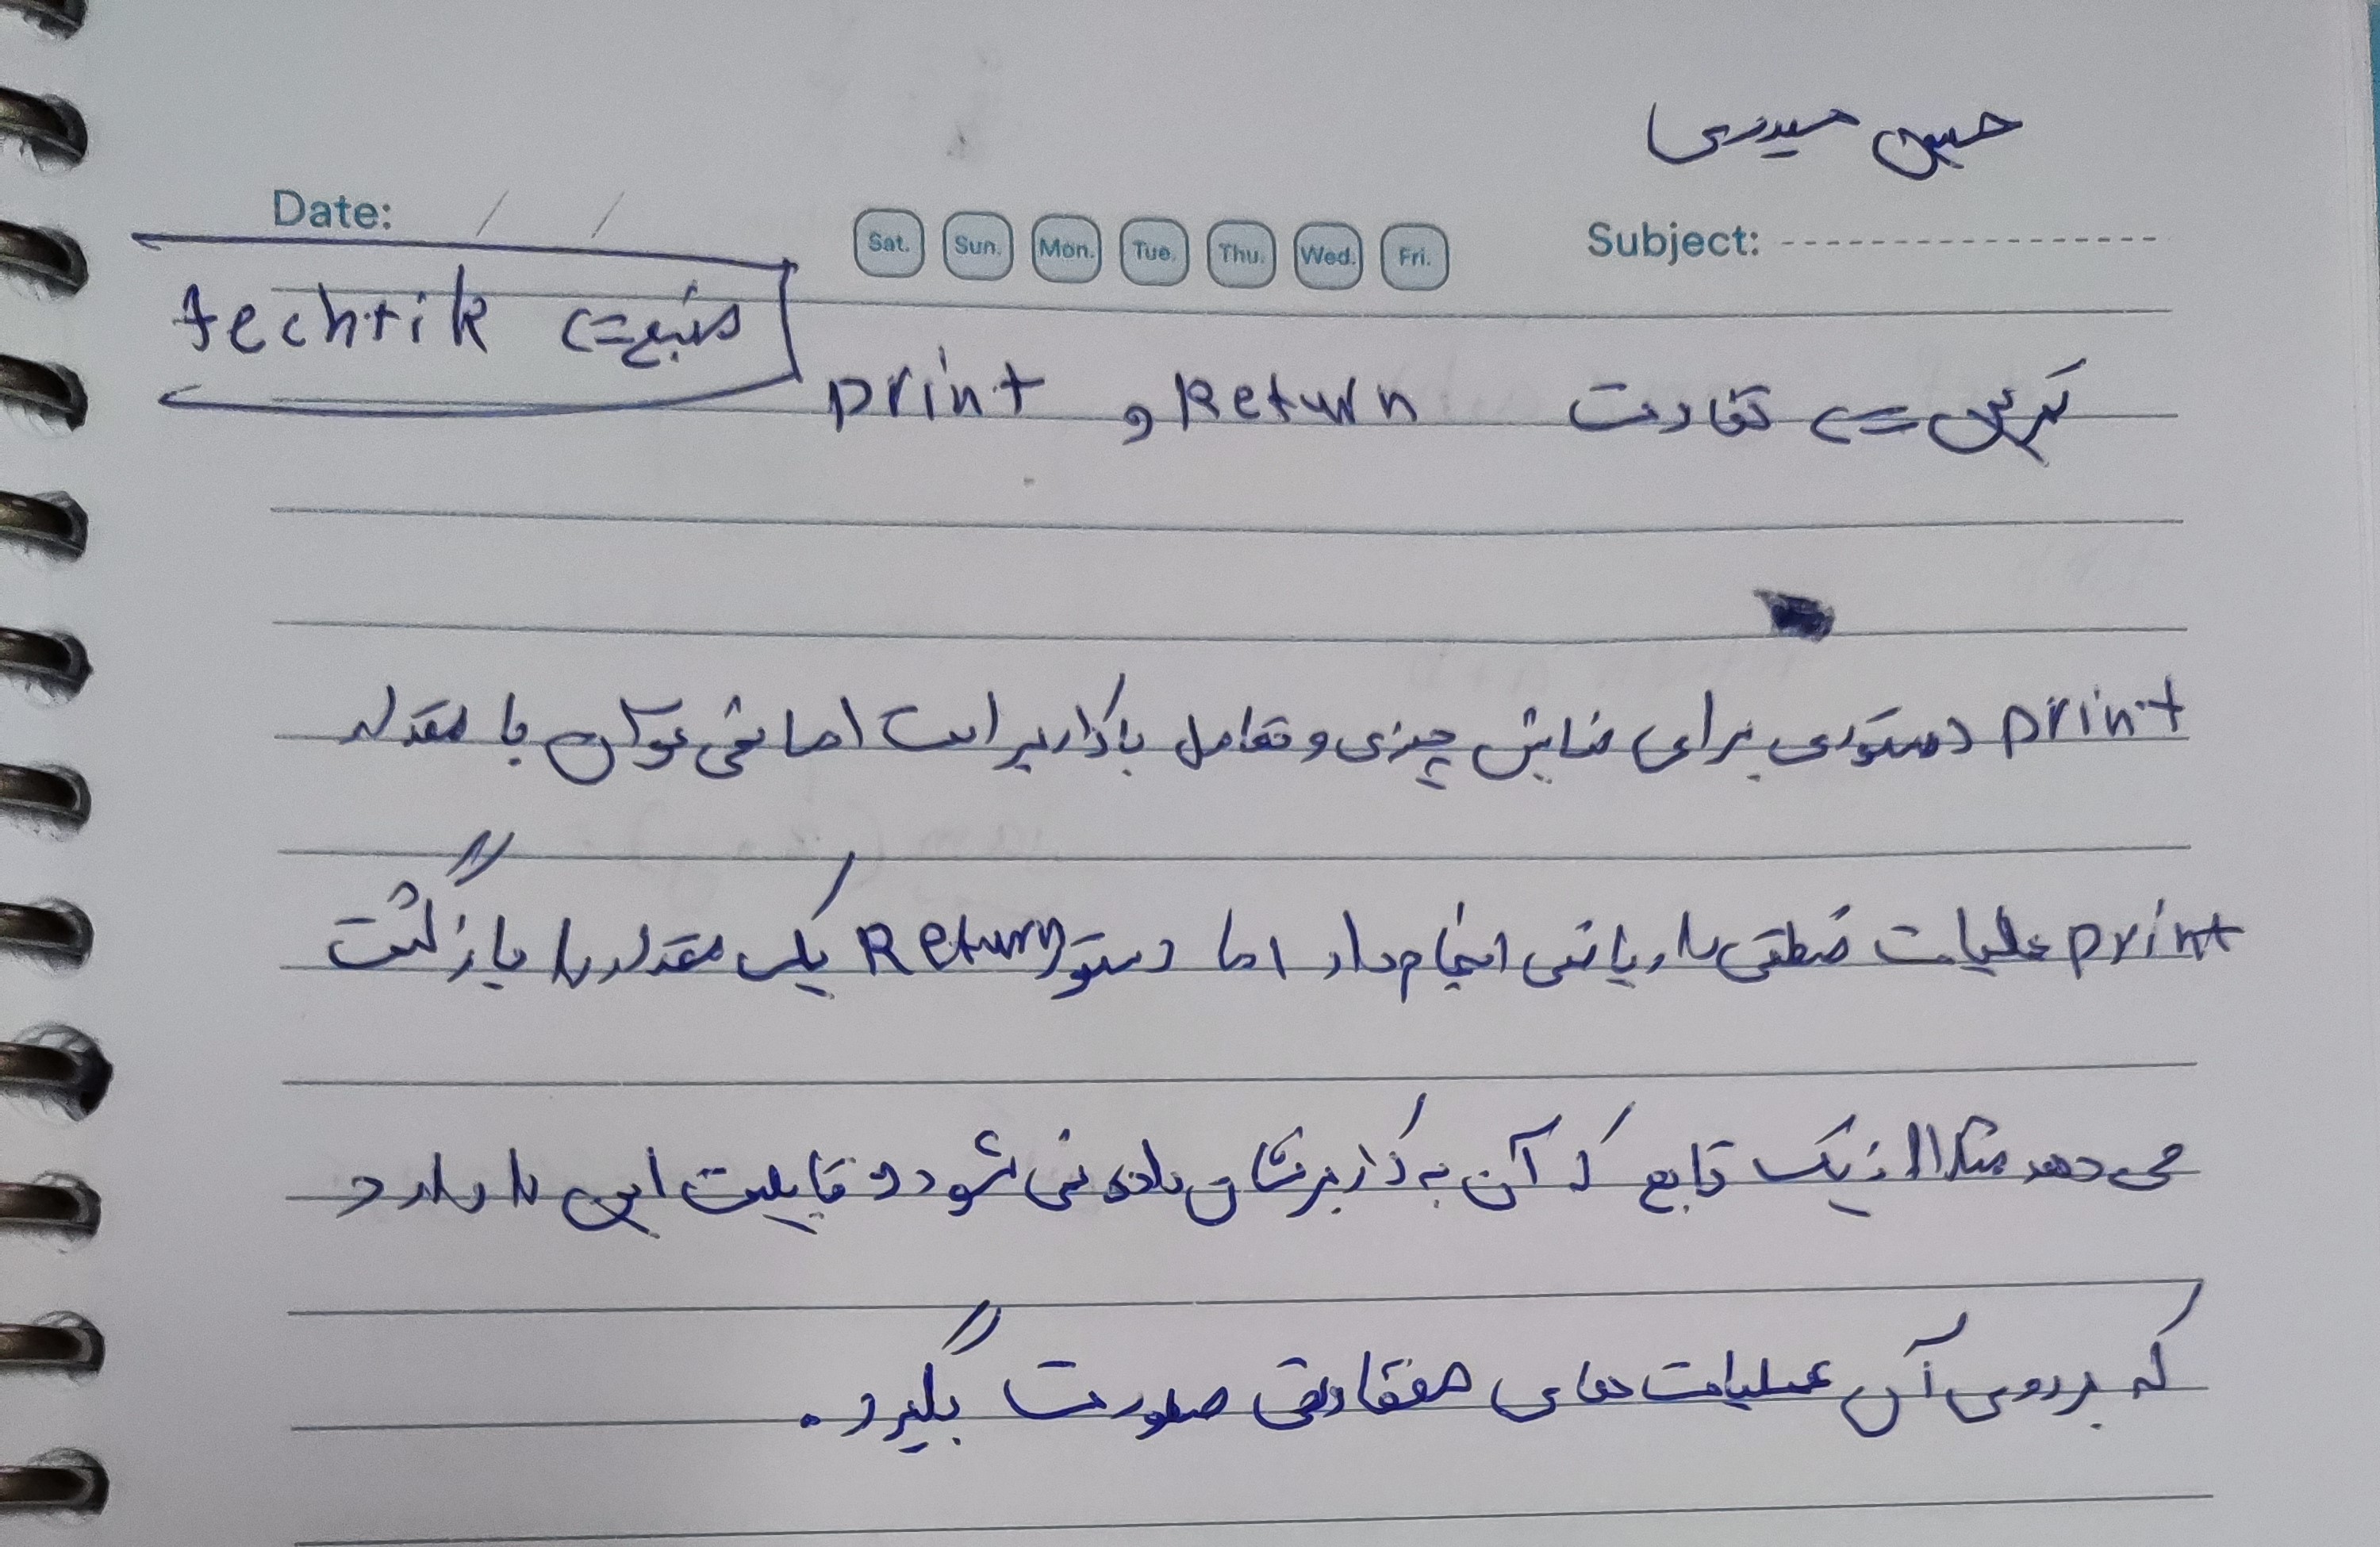 حسین حیدری
Date: / /
Sat. Sun. Mon. Tue. Thu. Wed. Fri.
Subject:
منبع <= techtik
تمرین <= تفاوت Return و print
print دستوری برای نمایش چیزی و تعامل با کاربر است اما نمی توان با مقدار
print عملیات منطقی یا ریاضی انجام داد اما دستور Return یک مقدار را بازگشت
می دهد مثلا از یک تابع که آن به کاربر نشان داده نمی شود و قابلیت این را دارد
که بر روی آن عملیات های متفاوتی صورت بگیرد.